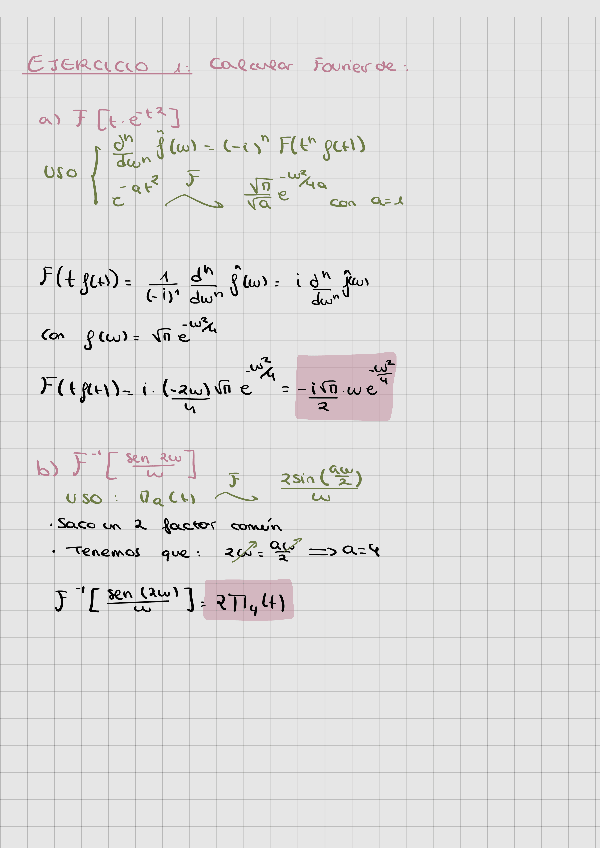 EJERCICIO 1: Calcular Fourier de:
a) F [t · e^-t²]
USO { d^n/dω^n f̂(ω) = (-i)^n F(t^n f(t))
e^-at² F→ √π/√a e^-ω²/4a con a=1
F(t f(t)) = 1/(-i)¹ d^n/dω^n f̂(ω) = i d^n/dω^n f̂(ω)
con f(ω) = √π e^-ω²/4
F(t f(t)) = i · (-2ω)/4 √π e^-ω²/4 = -i√π/2 · ω e^-ω²/4
b) F^-1 [sen 2ω/ω]
USO : Πa(t) F→ 2sin(aω/2)/ω
· Saco un 2 factor común
· Tenemos que: 2ω = aω/2 ⟹ a=4
F^-1 [sen (2ω)/ω] = 2Π4(t)